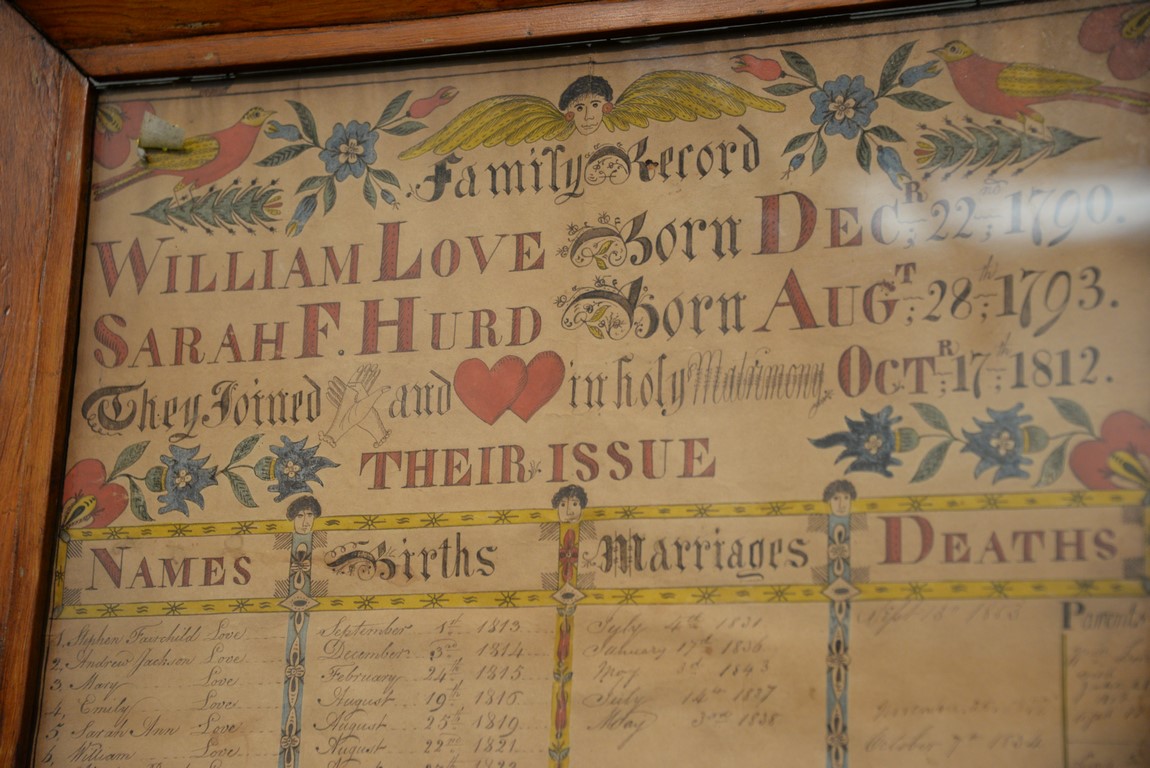 Family Record
WILLIAM LOVE Born DECR; 22nd; 1790.
SARAH F. HURD Born AUGT; 28th; 1793.
They Joined and in holy Matrimony, OCTR; 17th; 1812.
THEIR ISSUE
NAMES Births Marriages DEATHS
1. Stephen Fairchild Love September 1st 1813 July 4th 1831 Parents
2. Andrew Jackson Love December 3rd 1814 January 17th 1836
3. Mary Love February 24th 1815 May 1843
4. Emily Love August 19th 1816 July 14th 1837
5. Sarah Ann Love August 25th 1819 May 1838
6. William Love August 22nd 1821 October 7th